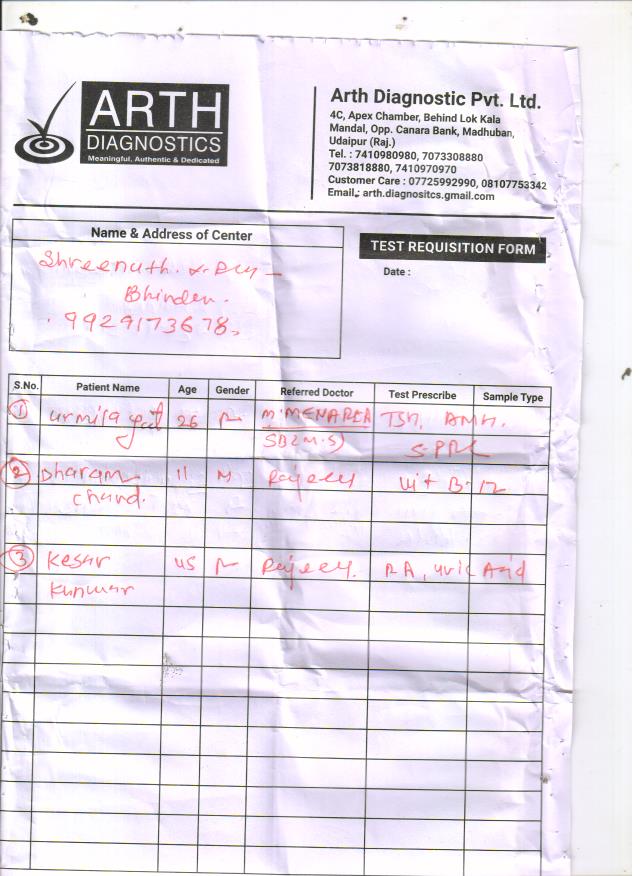 ARTH
DIAGNOSTICS
Meaningful, Authentic & Dedicated
Arth Diagnostic Pvt. Ltd.
4C, Apex Chamber, Behind Lok Kala
Mandal, Opp. Canara Bank, Madhuban,
Udaipur (Raj.)
Tel. : 7410980980, 7073308880
7073818880, 7410970970
Customer Care : 07725992990, 08107753342
Email.: arth.diagnositcs.gmail.com
Name & Address of Center
Shreenath
Bhinder.
9929173678
TEST REQUISITION FORM
Date :
S.No. Patient Name Age Gender Referred Doctor Test Prescribe Sample Type
1 Urmila 26 M. MENARIA TSH, AMH.
S-PRL
2 Dharam 11 M Rajeev Vit B-12
Chand.
3 Kesar 45 Rajeev. RA, Uric Acid
Kunwar